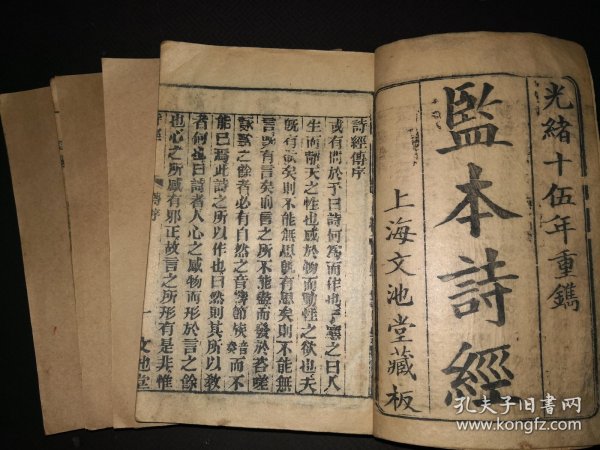 光緒十伍年重鐫
監本詩經
上海文池堂藏板
詩經傳序
或有問於予曰詩何爲而作也予應之曰人
生而靜天之性也感於物而動性之欲也夫
既有欲矣則不能無思既有思矣則不能無
言既有言矣則言之所不能盡而發於咨嗟
詠歎之餘者必有自然之音響節族音奏而不
能已焉此詩之所以作也曰然則其所以教
者何也曰詩者人心之感物而形於言之餘
也心之所感有邪正故言之所形有是非惟
詩經 傳序 一 文池堂
孔夫子旧書网
www.kongfz.com